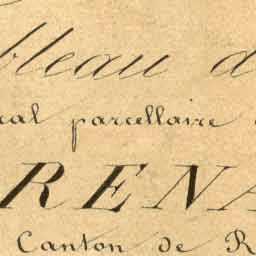 bleau d
ral parcellaire
RENA
Canton de R